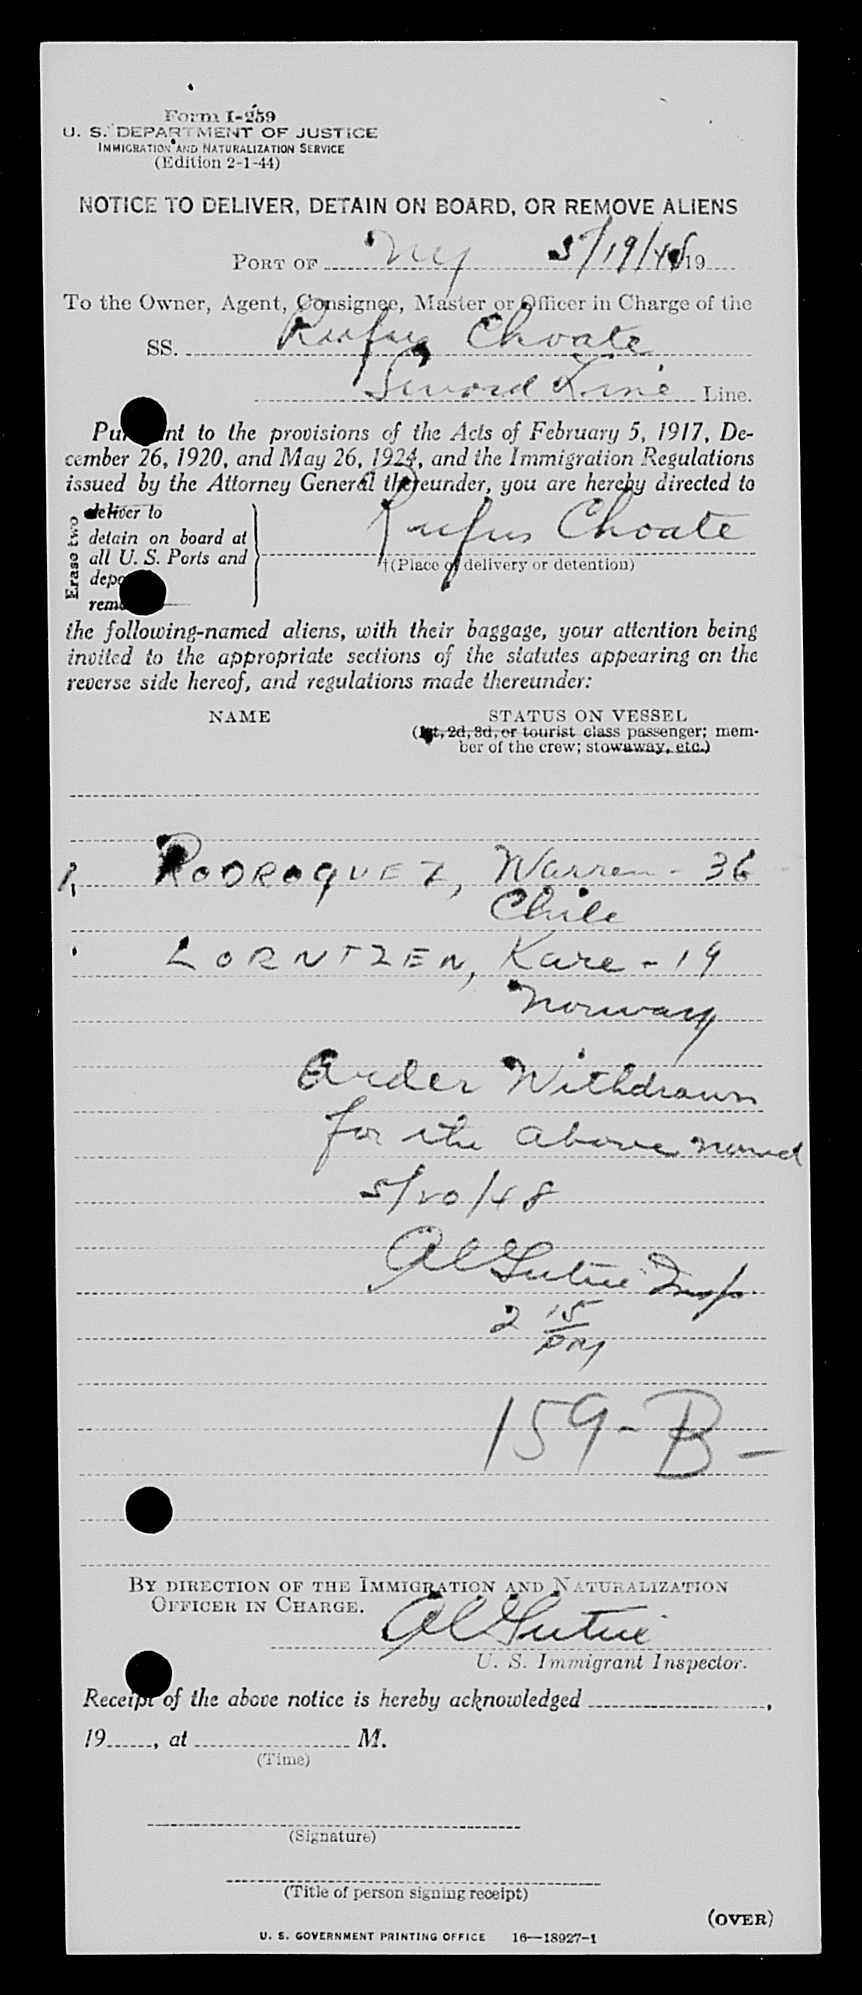 Form I-259
U. S. DEPARTMENT OF JUSTICE
IMMIGRATION AND NATURALIZATION SERVICE
(Edition 2-1-44)
NOTICE TO DELIVER, DETAIN ON BOARD, OR REMOVE ALIENS
PORT OF NY 5/19/48 19
To the Owner, Agent, Consignee, Master or Officer in Charge of the
SS. Rufus Choate
Sword Line Line.
Pursuant to the provisions of the Acts of February 5, 1917, De-
cember 26, 1920, and May 26, 1924, and the Immigration Regulations
issued by the Attorney General thereunder, you are hereby directed to
Erase two
deliver to
detain on board at
all U. S. Ports and
depo
remo
Rufus Choate
†(Place of delivery or detention)
the following-named aliens, with their baggage, your attention being
invited to the appropriate sections of the statutes appearing on the
reverse side hereof, and regulations made thereunder:
NAME STATUS ON VESSEL
(1st, 2d, 3d, or tourist class passenger; mem-
ber of the crew; stowaway, etc.)
RODROQUEZ, Warren - 36
Chile
LORNTZEN, Kare - 19
Norway
Order Withdrawn
for the above named
5/20/48
Insp.
2 15
PM
159-B-
BY DIRECTION OF THE IMMIGRATION AND NATURALIZATION
OFFICER IN CHARGE.
U. S. Immigrant Inspector.
Receipt of the above notice is hereby acknowledged ,
19 , at M.
(Time)
(Signature)
(Title of person signing receipt)
(OVER)
U. S. GOVERNMENT PRINTING OFFICE 16—18927-1